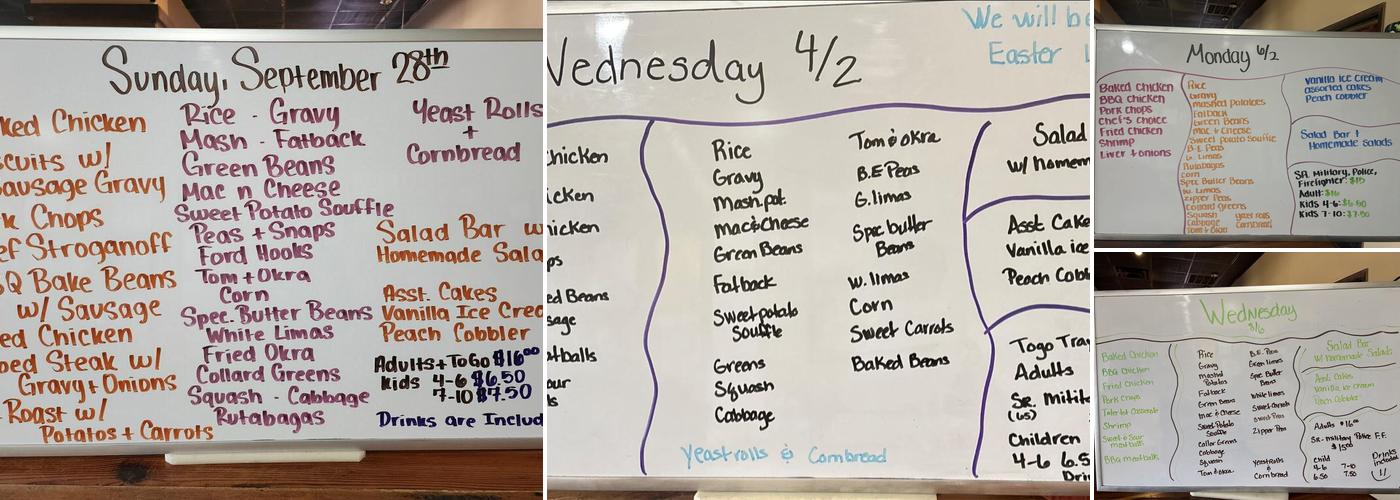 Sunday, September 28th
ked Chicken
scuits w/
ausage Gravy
k Chops
ef Stroganoff
Q Bake Beans
w/ Sausage
ed Chicken
bed Steak w/
Gravy + Onions
Roast w/
Potatos + Carrots
Rice - Gravy
Mash - Fatback
Green Beans
Mac n Cheese
Sweet Potato Souffle
Peas + Snaps
Ford Hooks
Tom + Okra
Corn
Spec. Butter Beans
White Limas
Fried Okra
Collard Greens
Squash - Cabbage
Rutabagas
Yeast Rolls
+
Cornbread
Salad Bar w
Homemade Sala
Asst. Cakes
Vanilla Ice Crea
Peach Cobbler
Adults + To Go $16.00
Kids 4-6 $6.50
7-10 $7.50
Drinks are Includ
We will be
Easter L
Wednesday 4/2
Chicken
icken
hicken
ps
ed Beans
sage
atballs
our
ls
Rice
Gravy
Mash.pot.
mac & Cheese
Green Beans
Fatback
Sweet potato
Souffle
Greens
Squash
Cabbage
Tom & Okra
B.E Peas
G. limas
Spec butter
Beans
w. limas
Corn
Sweet Carrots
Baked Beans
Yeast rolls & Cornbread
Salad
w/ homem
Asst Cake
Vanilla ice
Peach Cobb
Togo Tray
Adults
Sr. Milit
(65)
Children
4-6 6.5
Drin
Monday 6/2
Baked Chicken
BBQ Chicken
Pork Chops
Chef's Choice
Fried Chicken
Shrimp
Liver + onions
Rice
Gravy
mashed potatoes
Fatback
Green Beans
Mac & Cheese
Sweet potato Souffle
B.E. Peas
G. Limas
Rutabagas
Corn
Spec Butter Beans
W. Limas
Zipper Peas
Collard Greens
Squash yeast rolls
Cabbage Cornbread
Tom & Okra
Vanilla Ice Cream
assorted cakes
Peach cobbler
Salad Bar +
Homemade Salads
SR. Military, Police,
Firefighter: $15
Adult: $16
Kids 4-6: $6.50
Kids 7-10: $7.50
Wednesday
8/6
Baked Chicken
BBQ Chicken
Fried Chicken
Pork Chops
Shrimp
Sweet & Sour
meatballs
BBQ meatballs
Rice
Gravy
Mashed
Potatoes
Fatback
Green Beans
Mac & Cheese
Sweet Potato
Souffle
Collar Greens
Cabbage
Squash
Tom & Okra
B.E. Peas
Green limas
Spec Butter
Beans
White limas
Sweet Carrots
Sweet Peas
Zipper Peas
Yeast rolls
&
Cornbread
Salad Bar
w/ Homemade Salads
Asst Cakes
Vanilla ice cream
Peach Cobbler
Adults $16.00
Sr. military Police F.F.
$15.00
Child
4-6 7-10
6.50 7.50
Drinks
Included